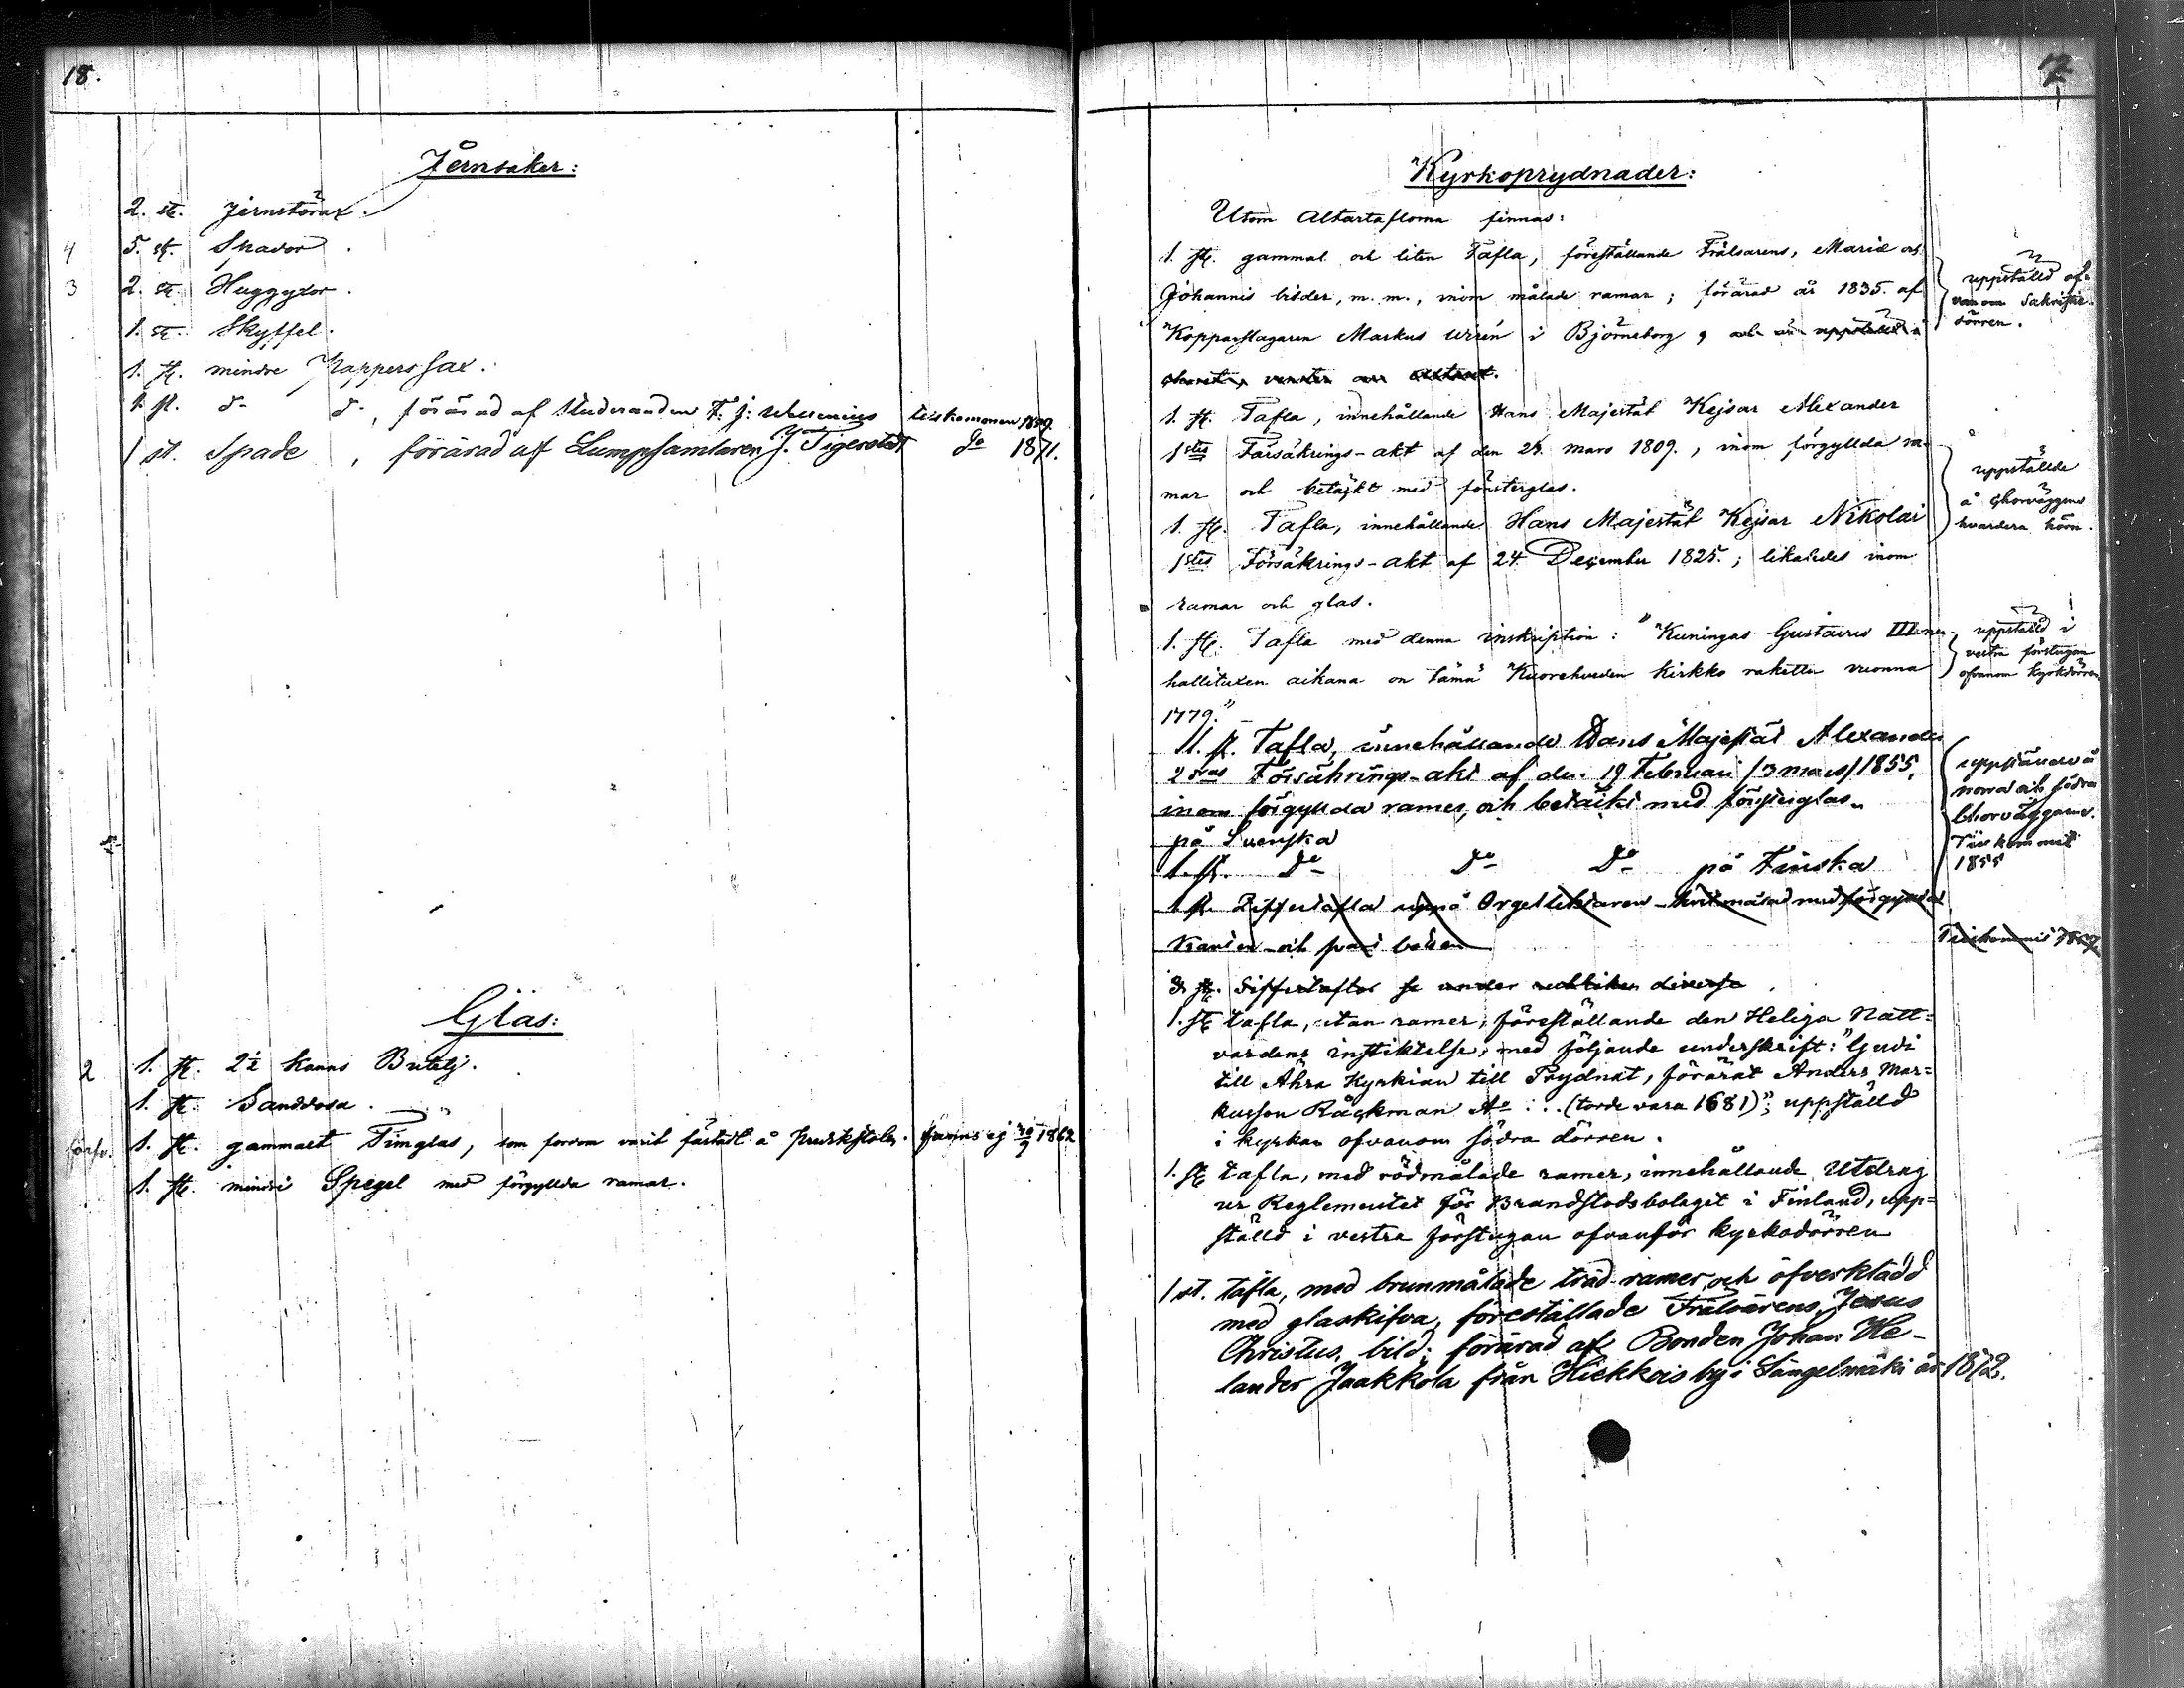 18.
Jernsaker:
2. st. Jernstörar.
4 5. st. Spador.
3 2. st. Huggyxor.
1. st. Skyffel.
1. st. mindre Papperssax.
1. st. do do, förärad af Studeranden F. J. tillkommen
1 st. Spade, förärad af Lumpsamlaren J. Tigerstedt do 1871.
Glas:
2 1. st. 2½ kanns Butelj.
1. st. Sanddosa.
1. st. gammalt Timglas, som fordom varit fästadt å predikstolen. finnes ej 1862
1. st. mindre Spegel med förgyllda ramar.
Kyrkoprydnader:
Utom Altartaflorna finnas:
1. st. gammal och liten Tafla, föreställande Frälsarens, Mariæ och
Johannis bilder, m. m., inom målade ramar; förärad år 1835. af
Kopparslagaren Markus Wirén i Björneborg, och är uppstäld i
choret, venster om altaret.
uppställd of-
vanom Sakristie-
dörren.
1. st. Tafla, innehållande Hans Majestät Kejsar Alexander
1stes Försäkrings-akt af den mars 1809., inom förgyllda ra-
mar och betäckt med fönsterglas.
1. st. Tafla, innehållande Hans Majestät Kejsar Nikolai
1stes Försäkrings-akt af 24 December 1825.; likaledes inom
ramar och glas.
uppställde
å Chorväggens
hvardera hörn.
1. st. Tafla med denna inskription: "Kuningas Gustavus III:nen
hallituxen aikana on tämä Kuorehweden Kirkko rakettu vuonna
1779."
uppställd i
vestra förstugan
ofvanom kyrkdörren
1. st. Tafla, innehållande Hans Majestät Alexander
2dras Försäkrings-akt af den 19 Februari /3 mars/ 1855,
inom förgyllda ramer, och betäckt med fönsterglas
på Svenska
1. st. do do do på Finska
norra och södra
Chorväggarne.
Tillkommit
1855
1 st. Ziffertafla uppå Orgelläktaren hvitmålad med förgylld
Tillkommit
3 st. Siffertaflor se under rubriken diverse
1. st. tafla, utan ramer, föreställande den Heliga Natt=
vardens instiktelse, med följande underskrift: "Gudi
till Ähra Kyrkian till Prydnat, förärat Anders Mar=
kusson Räckman Ao ... (torde vara 1681)"; uppställd
i kyrkan ofvanom södra dörren.
1. st. tafla, med rödmålade ramer, innehållande Utdrag
ur Reglementet för Brandstodsbolaget i Finland, upp=
ställd i vestra förstugan ofvanför kyrkodörren
1 st. tafla, med brunmålade träd-ramer och öfverklädd
med glasskifva, föreställade Frälsarens, Jesus
Christus, bild; förärad af Bonden Johan He-
lander Jaakkola från Hiekkois by i Längelmäki år 1872.